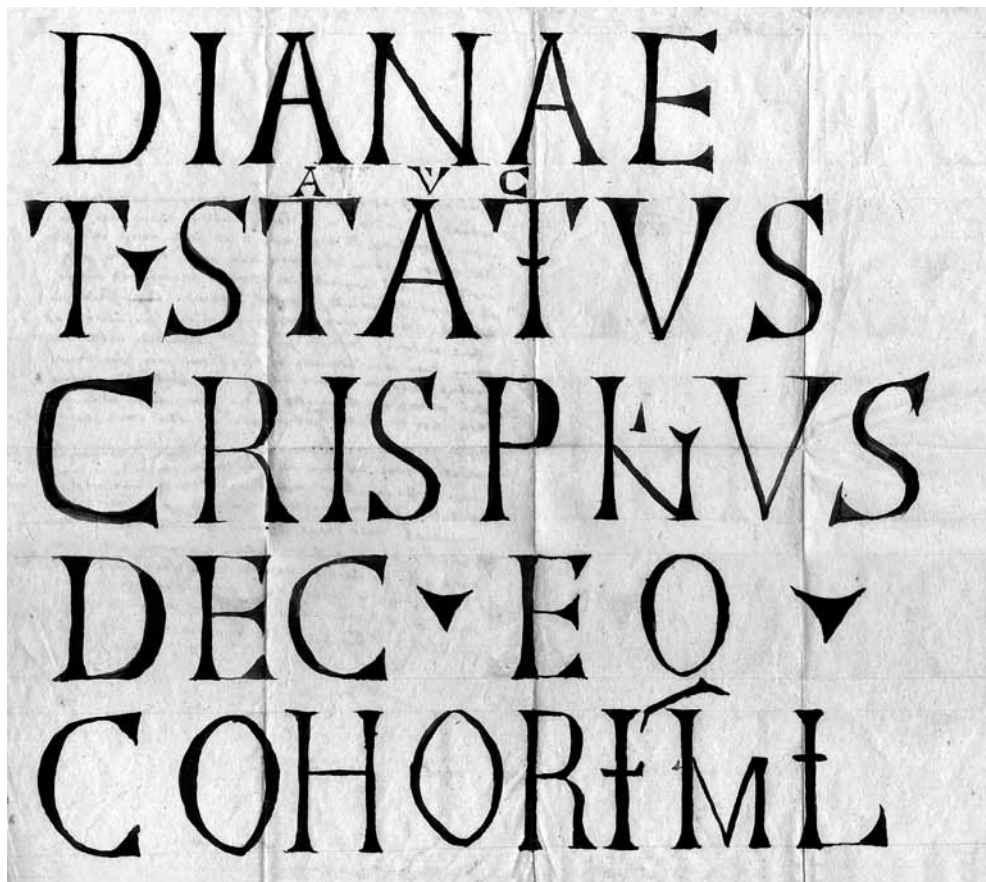 DIANAE
A V C
T▾STATVS
CRISPINVS
DEC ▾ EO ▾
COHORIÍML